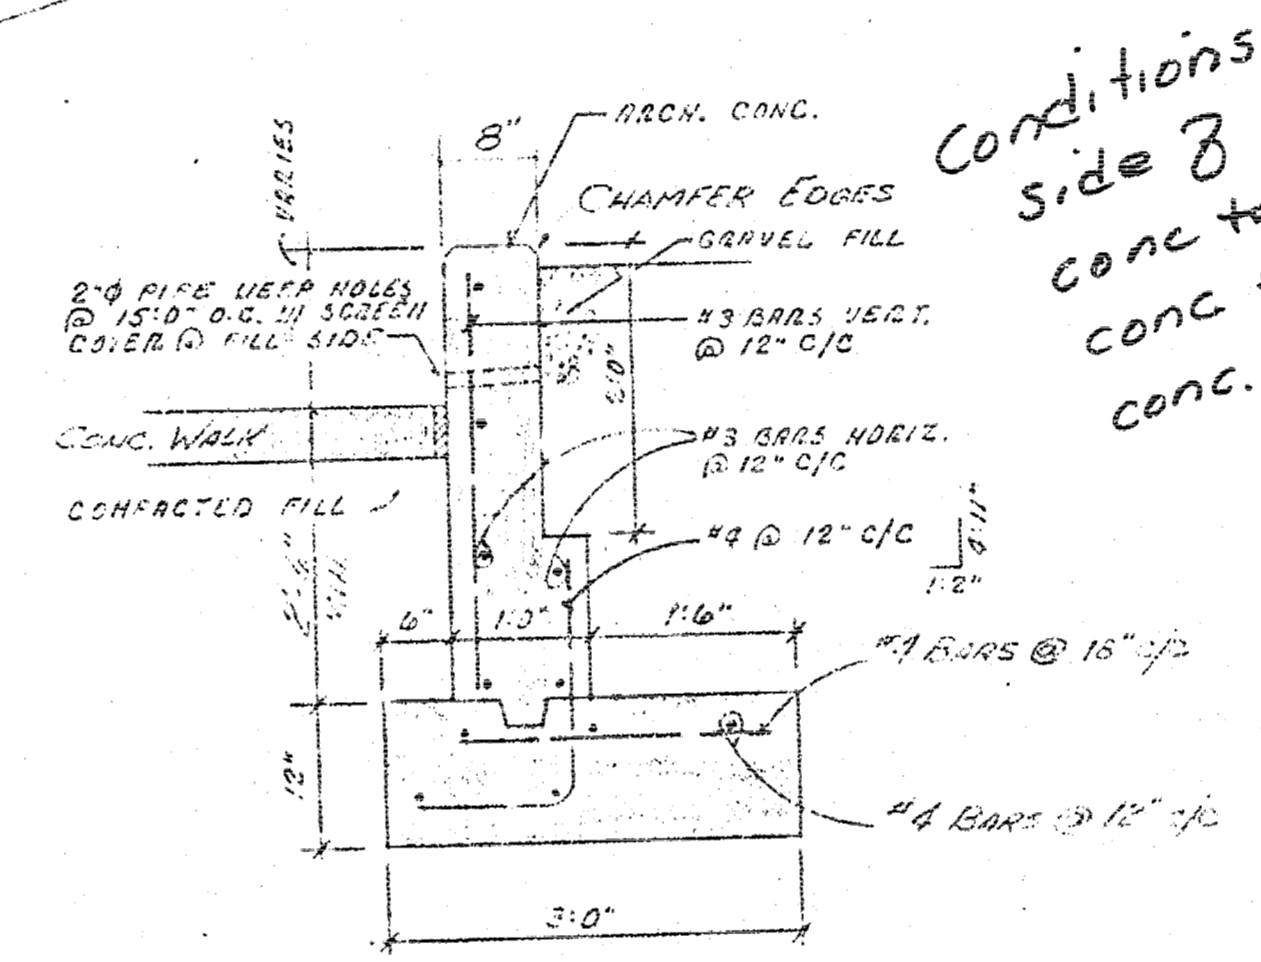 8"
ARCH. CONC.
VARIES
CHAMFER EDGES
GRAVEL FILL
2"Φ PIPE WEEP HOLES
@ 15'0" O.C. W SCREEN
COVER @ FILL SIDE
#3 BARS VERT.
@ 12" C/C
CONC. WALK
#3 BARS HORIZ.
@ 12" C/C
COMPACTED FILL
#4 @ 12" C/C
1:2"
6"
1:0"
1:6"
BARS @
12"
#4 BARS @ 12" c/c
3:0"
Conditions
side
conc
conc
conc.